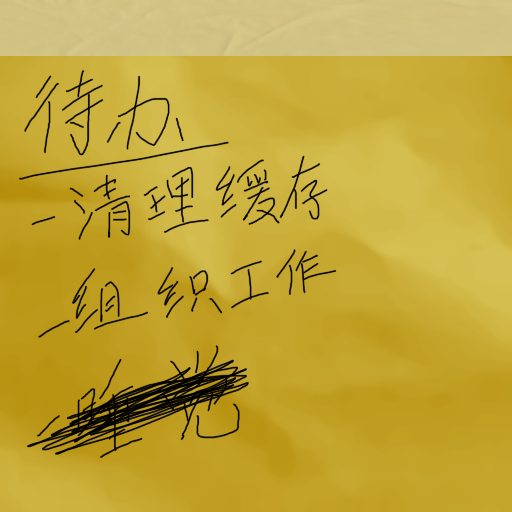 待办
-清理缓存
-组织工作
-睡觉